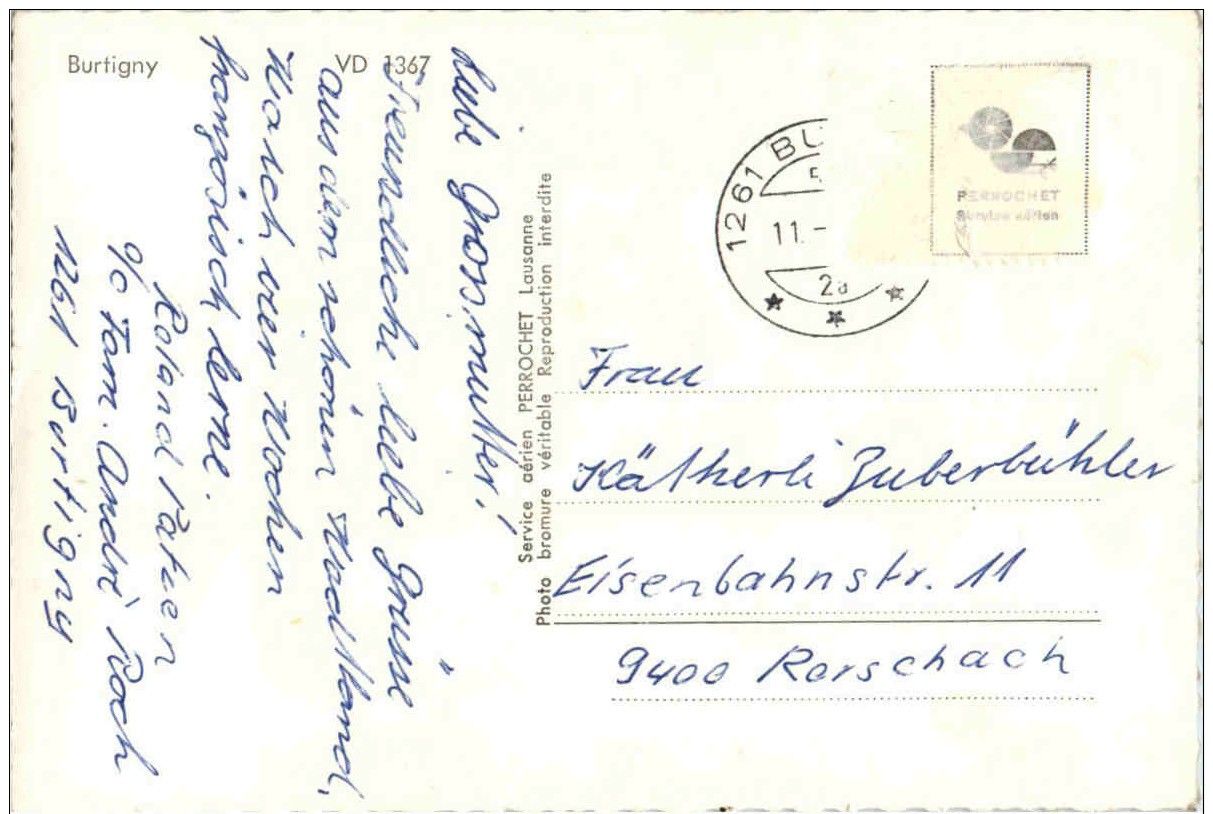 Burtigny
VD 1367
Liebe Grossmutter!
Freundliche liebe Grüsse
aus dem schönen Wadtland,
französisch lerne.
Roland
c/o Fam. André Roch
1261 Burtigny
Service aérien PERROCHET Lausanne
Photo bromure véritable Reproduction interdite
1261 BU
11.-
2a
PERROCHET
Service aérien
Frau
Kätherli Zuberbühler
Eisenbahnstr. 11
9400 Rorschach